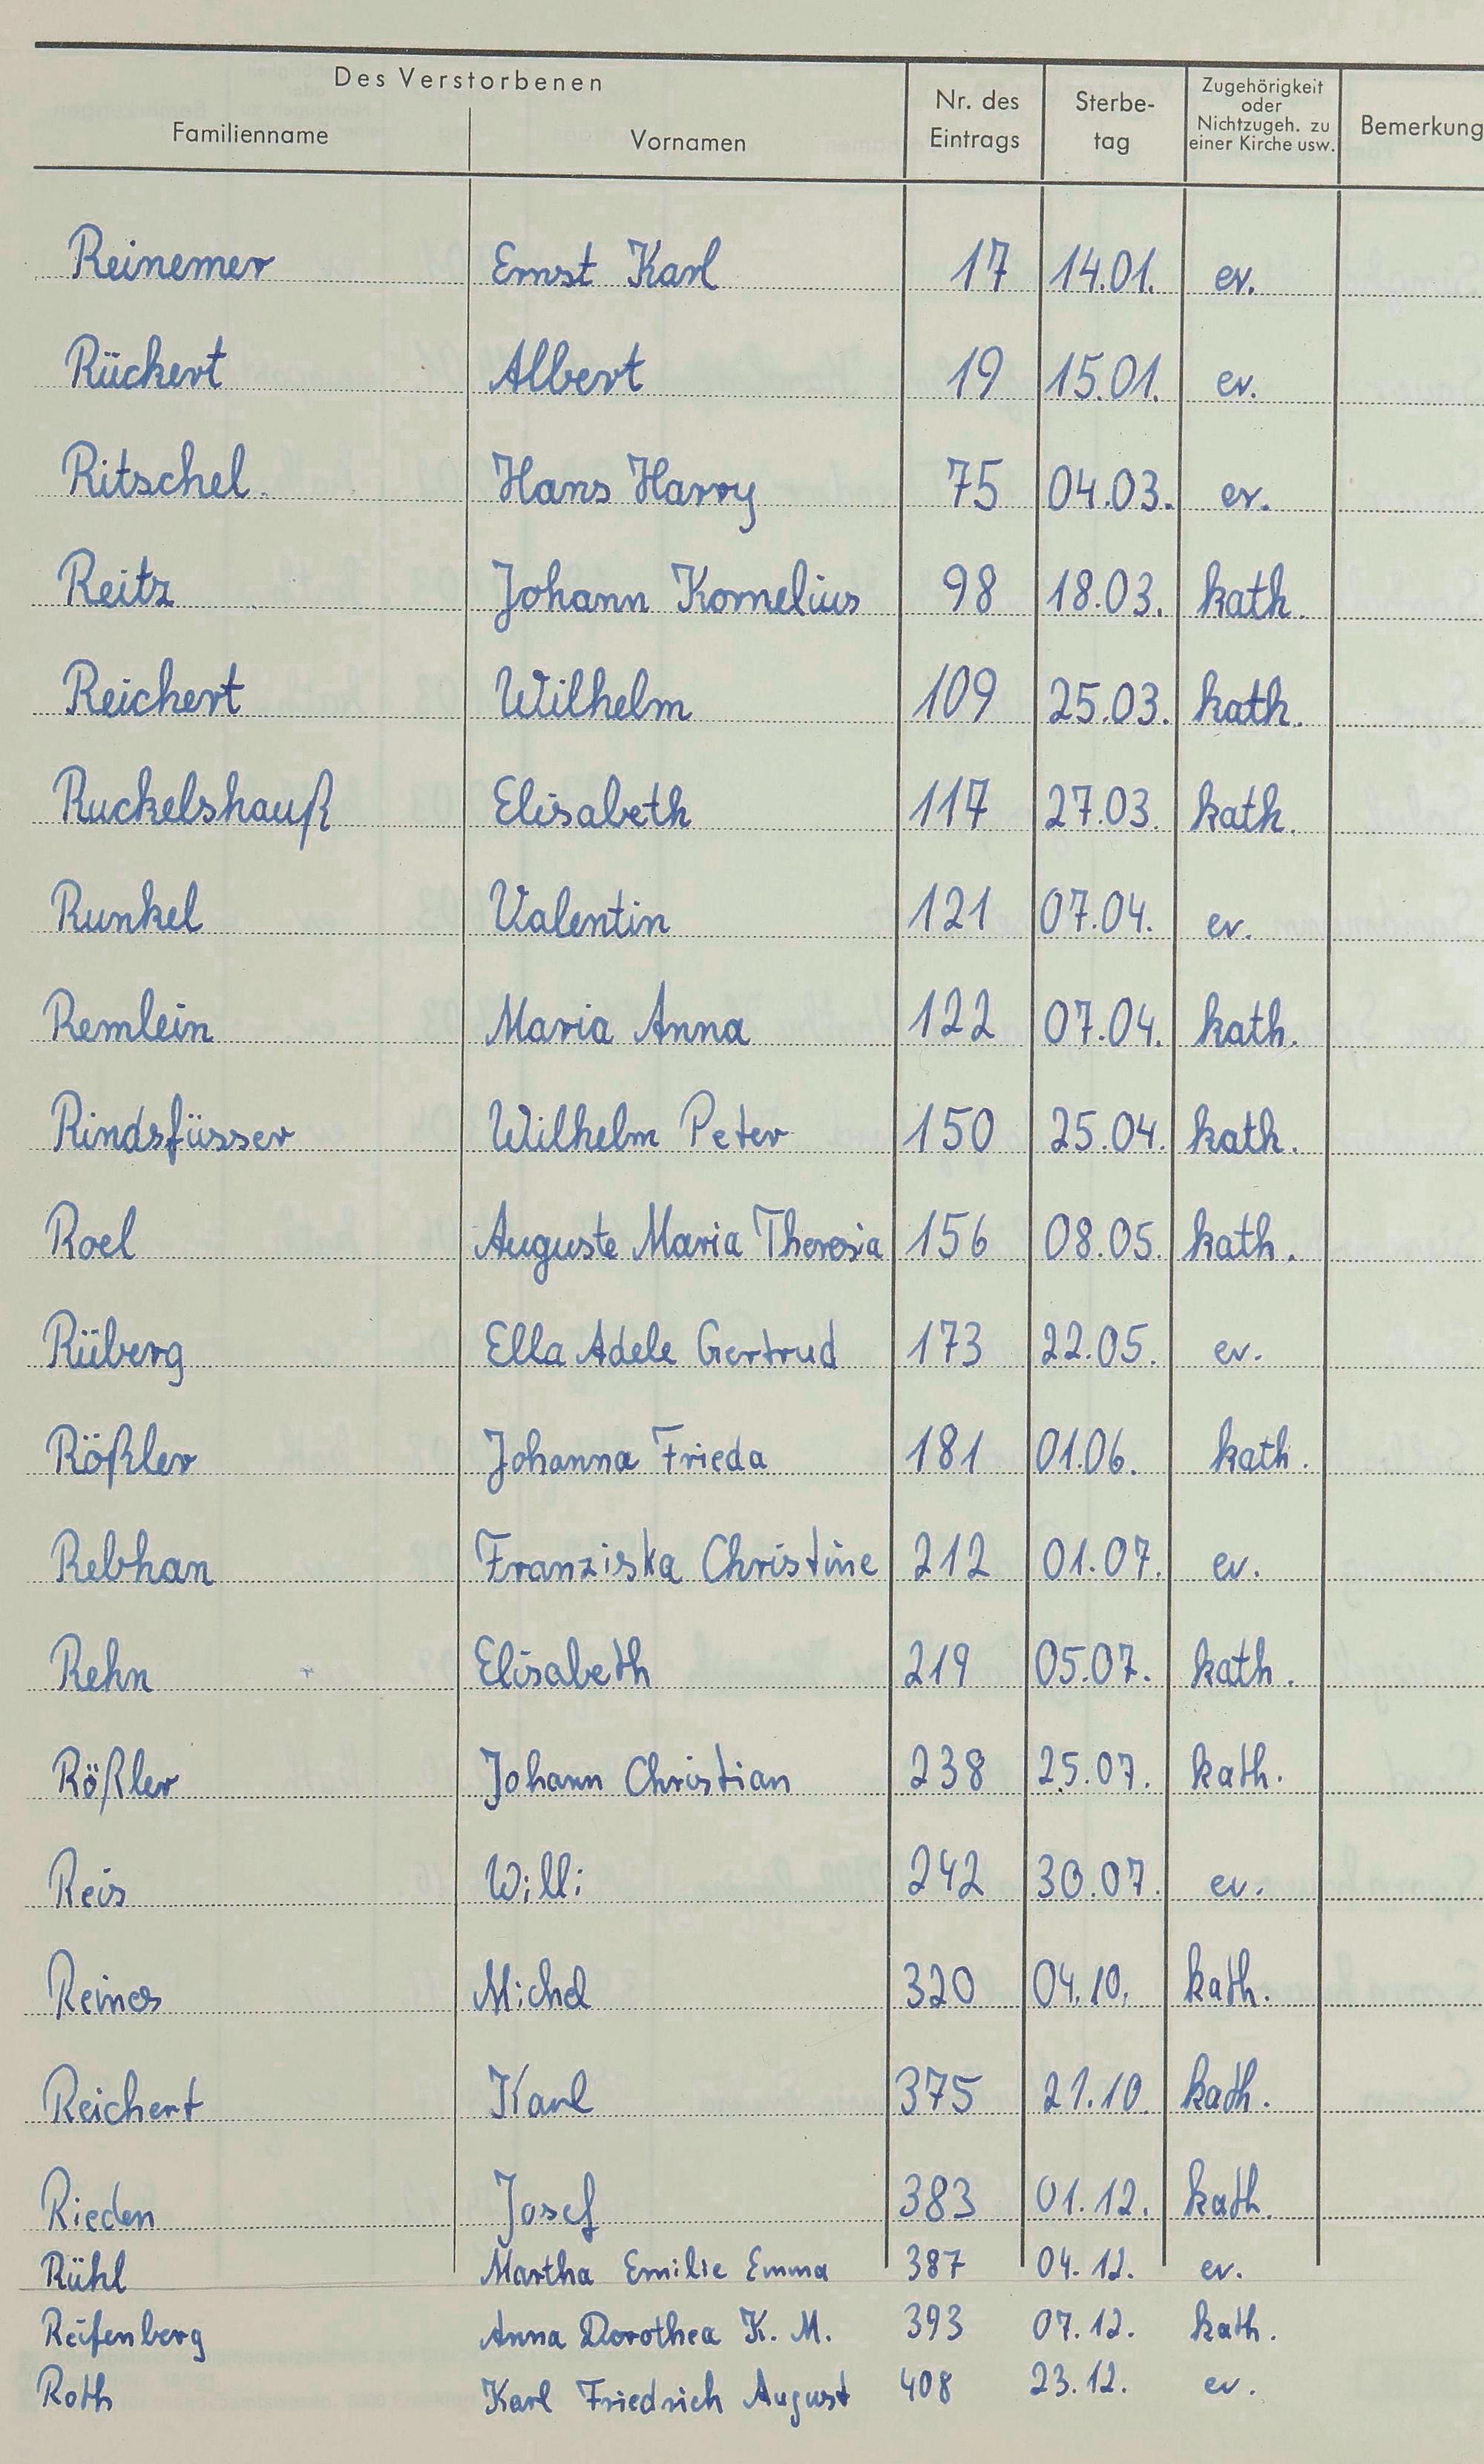 Des Verstorbenen
Familienname Vornamen Nr. des Eintrags Sterbe-tag Zugehörigkeit oder Nichtzugeh. zu einer Kirche usw. Bemerkung
Reinemer Ernst Karl 17 14.01. ev.
Rückert Albert 19 15.01. ev.
Ritschel Hans Harry 75 04.03. ev.
Reitz Johann Kornelius 98 18.03. kath.
Reichert Wilhelm 109 25.03. kath.
Ruckelshauß Elisabeth 117 27.03. kath.
Runkel Valentin 121 07.04. ev.
Remlein Maria Anna 122 07.04. kath.
Rindsfüsser Wilhelm Peter 150 25.04. kath.
Roel Auguste Maria Theresia 156 08.05. kath.
Rüberg Ella Adele Gertrud 173 22.05. ev.
Rößler Johanna Frieda 181 01.06. kath.
Rebhan Franziska Christine 212 01.07. ev.
Rehn Elisabeth 219 05.07. kath.
Rößler Johann Christian 238 25.07. kath.
Reis Willi 242 30.07. ev.
Reines Michel 320 04.10. kath.
Reichert Karl 375 21.10. kath.
Rieden Josef 383 01.12. kath.
Rühl Martha Emilie Emma 387 04.12. ev.
Reifenberg Anna Dorothea K. M. 393 07.12. kath.
Roth Karl Friedrich August 408 23.12. ev.